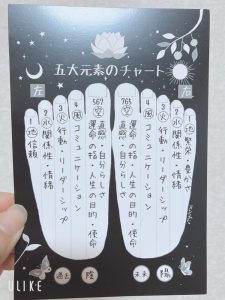 五大元素のチャート
左
左
1 地 信頼
2 水 関係性・情緒
3 火 行動・リーダーシップ
4 風 コミュニケーション
567 空 直感・自分らしさ
運命の指・人生の目的・使命
765 空 直感・自分らしさ
運命の指・人生の目的・使命
4 風 コミュニケーション
3 火 行動・リーダーシップ
2 水 関係性・情緒
1 地 繁栄・豊かさ
過去 陰 未来 陽
ULIKE